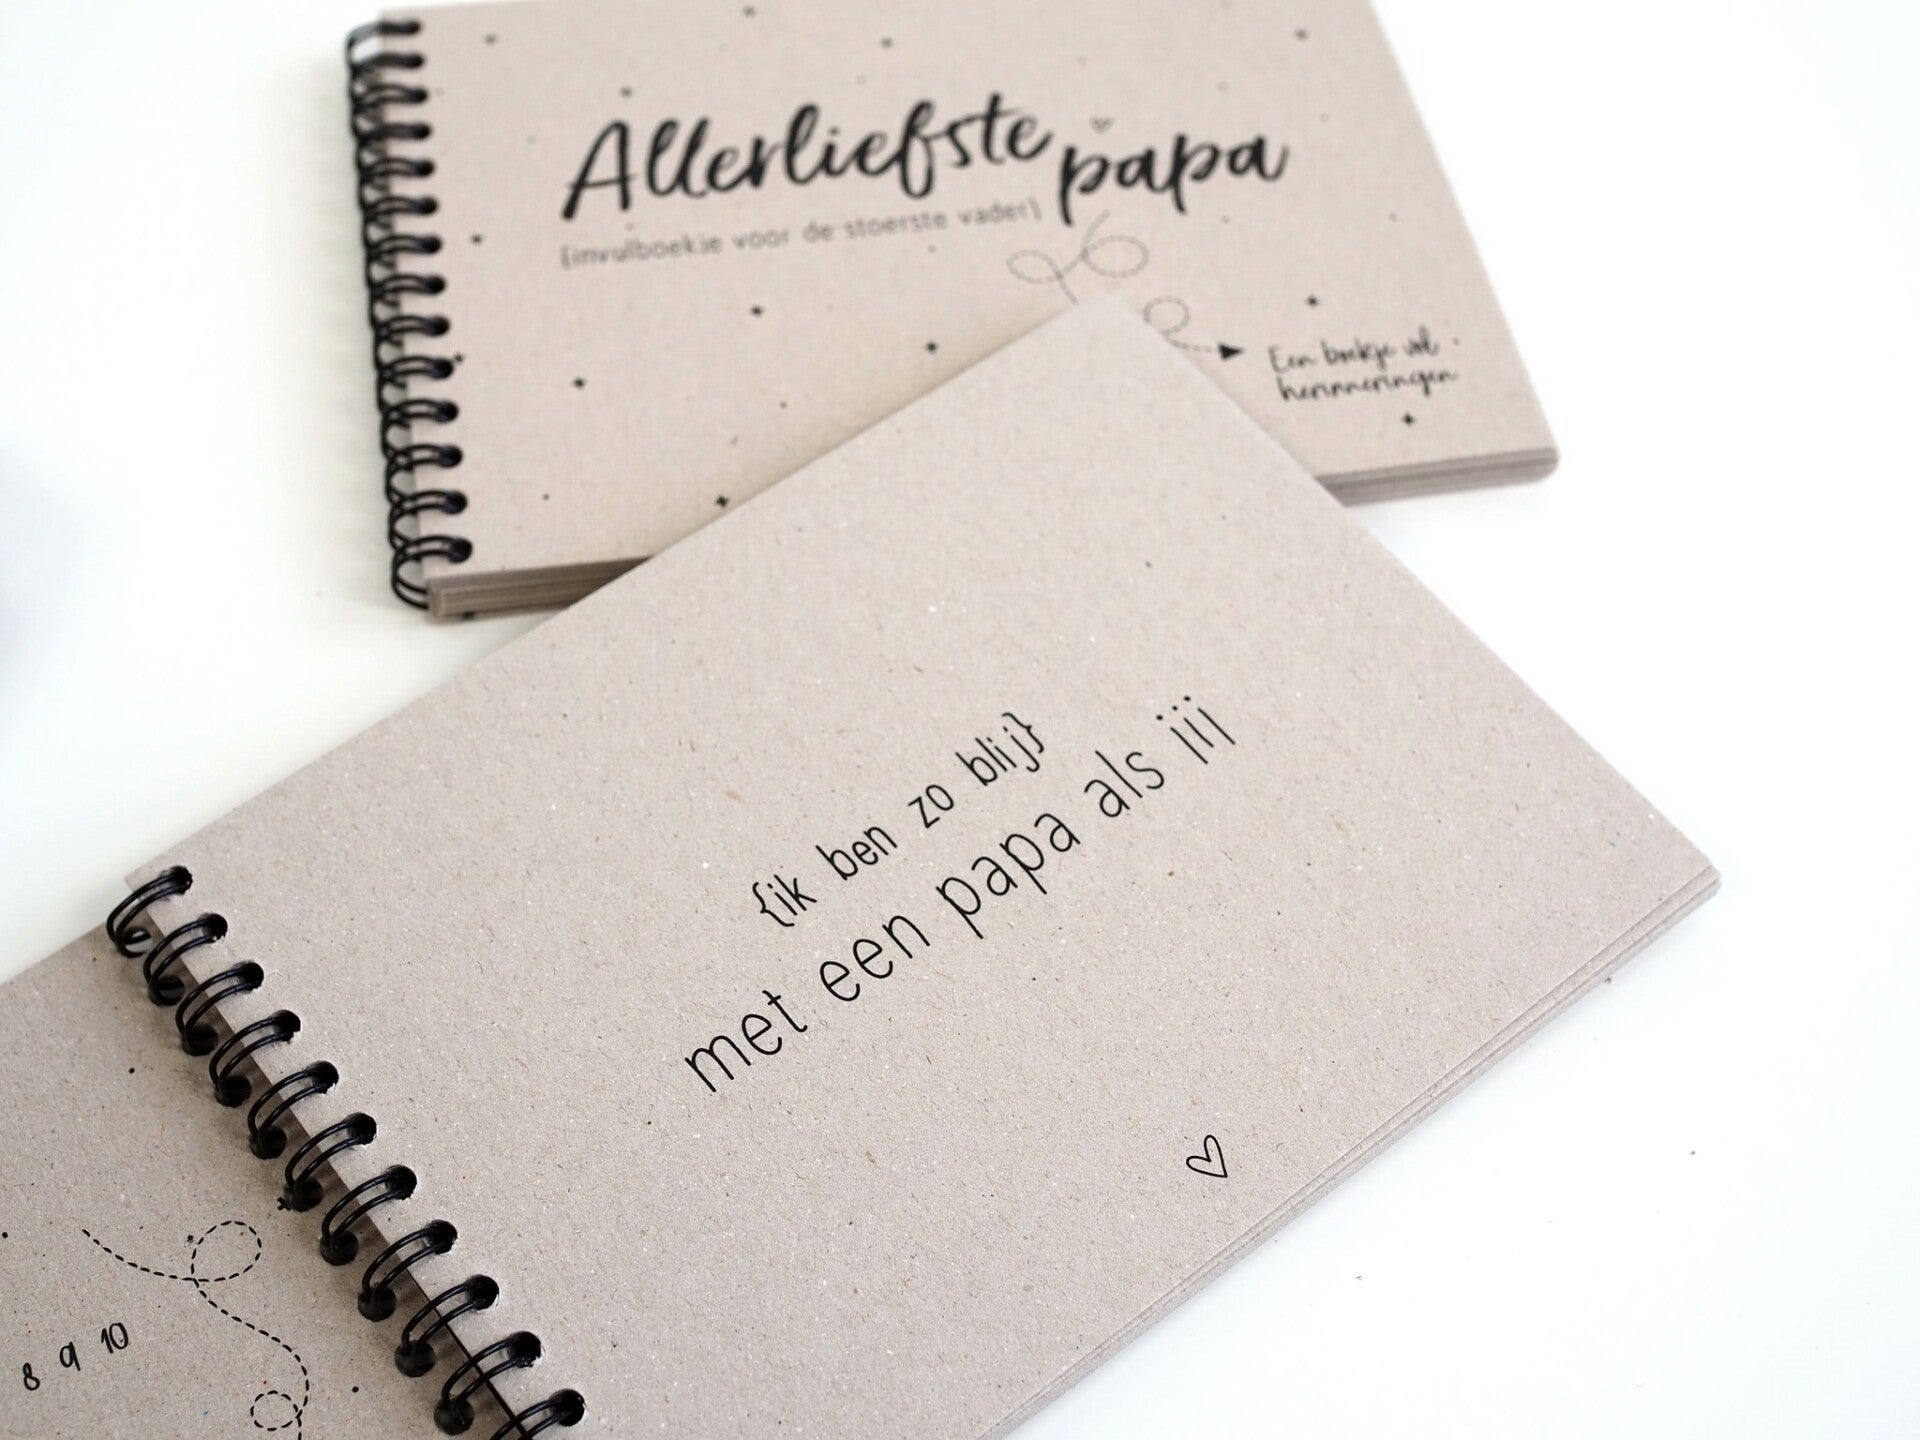 Allerliefste papa
{invulboekje voor de stoerste vader}
Een boekje vol
herinneringen
{ik ben zo blij}
met een papa als jij
8 9 10